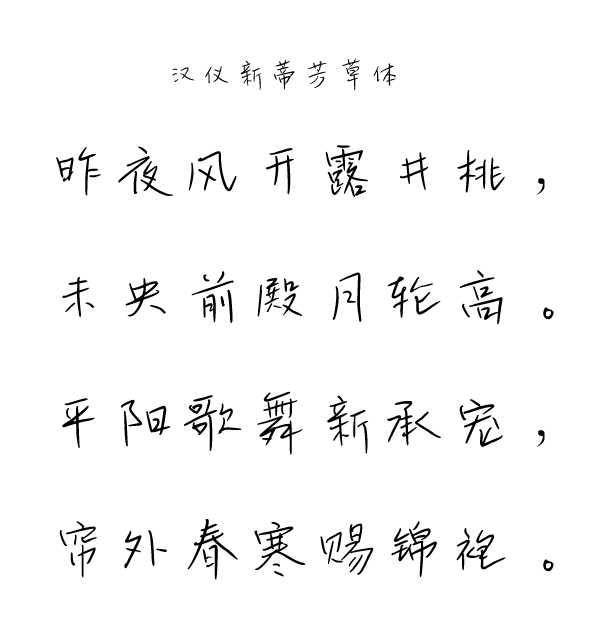 汉仪新蒂芳草体
昨夜风开露井桃，
未央前殿月轮高。
平阳歌舞新承宠，
帘外春寒赐锦袍。